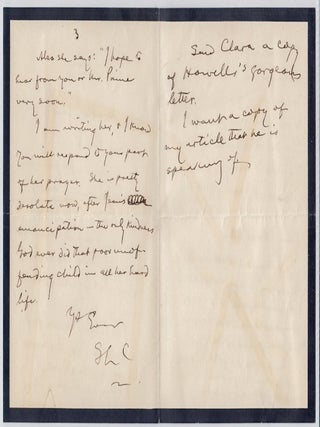 3
Also she says: "I hope to
hear from you or Mr. Paine
very soon."
I am writing her, & I know
you will respond to your part
of her prayer. She is pretty
desolate now, after Jean's
emancipation — the only kindness
God ever did that poor unof-
fending child in all her hard
life.
Ys Ever
SLC
Send Clara a copy
of Howells's gorgeous
letter.
I want a copy of
my article that he is
speaking of.